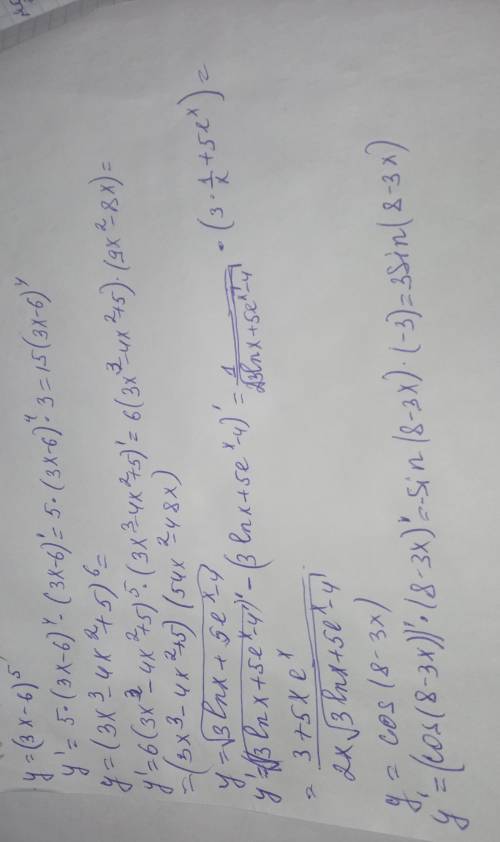 y = (3x-6)^5
y' = 5·(3x-6)^4·(3x-6)' = 5·(3x-6)^4·3 = 15(3x-6)^4
y = (3x^3-4x^2+5)^6 =
y' = 6(3x^3-4x^2+5)^5·(3x^3-4x^2+5)' = 6(3x^3-4x^2+5)·(9x^2-8x) =
= (3x^3-4x^2+5)(54x^2-48x)
y = √(3lnx+5e^x-4)
y' = (√(3lnx+5e^x-4))' - (3lnx+5e^x-4)' = 1/(2√(3lnx+5e^x-4)) · (3·1/x+5e^x) =
= (3+5xe^x)/(2x√(3lnx+5e^x-4))
y = cos(8-3x)
y' = (cos(8-3x))'·(8-3x)' = -sin(8-3x)·(-3) = 3sin(8-3x)